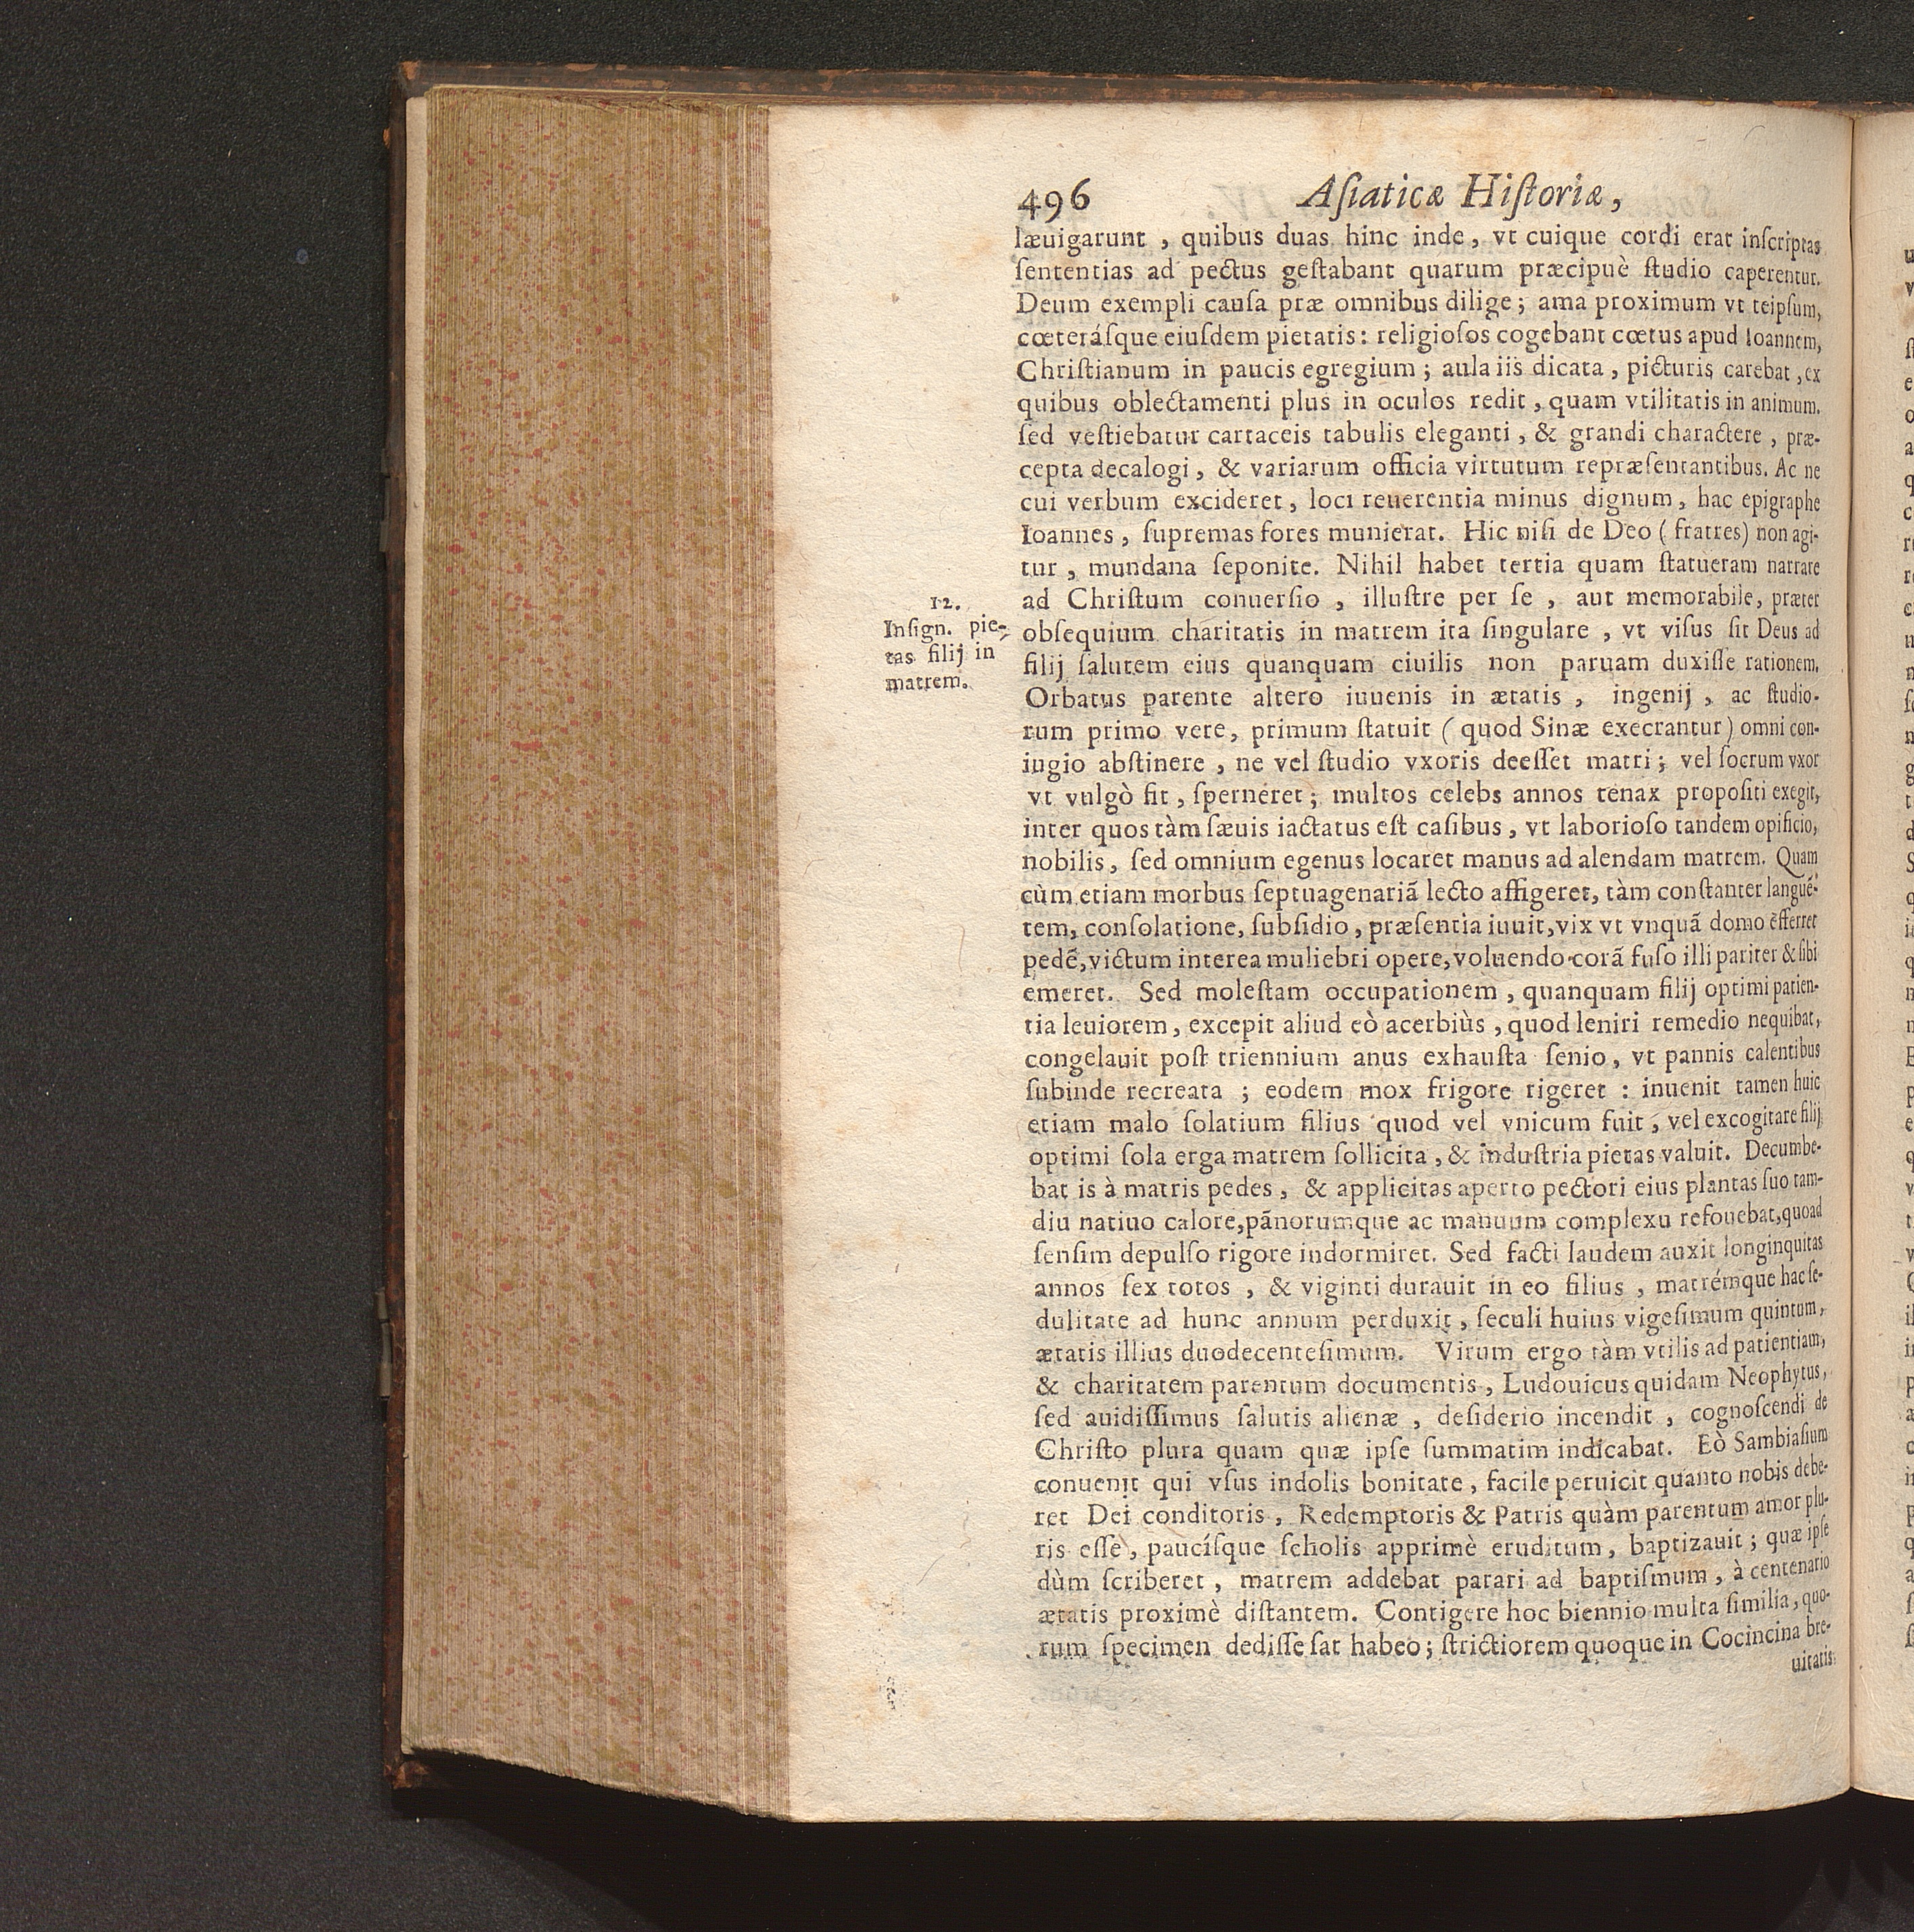 496 Aſiaticæ Hiſtoriæ,
læuigarunt , quibus duas hinc inde, vt cuique cordi erat inſcriptas
ſententias ad pectus geſtabant quarum præcipuè ſtudio caperentur.
Deum exempli cauſa præ omnibus dilige; ama proximum vt teipſum,
cœteráſque eiuſdem pietatis: religioſos cogebant cœtus apud Ioannem,
Chriſtianum in paucis egregium ; aula iis dicata , picturis carebat , ex
quibus oblectamenti plus in oculos redit , quam vtilitatis in animum.
ſed veſtiebatur cartaceis tabulis eleganti , & grandi charactere , præ-
cepta decalogi , & variarum officia virtutum repræſentantibus. Ac ne
cui verbum excideret, loci reuerentia minus dignum, hac epigraphe
Ioannes , ſupremas fores munierat. Hic niſi de Deo ( fratres) non agi-
tur , mundana ſeponite. Nihil habet tertia quam ſtatueram narrare
ad Chriſtum conuerſio , illuſtre per ſe , aut memorabile, præter
12.
Inſign. pie-
tas filij in
matrem.
obſequium charitatis in matrem ita ſingulare , vt viſus ſit Deus ad
filij ſalutem eius quanquam ciuilis non paruam duxiſſe rationem.
Orbatus parente altero iuuenis in ætatis , ingenij , ac ſtudio-
rum primo vere, primum ſtatuit ( quod Sinæ execrantur ) omni con-
iugio abſtinere , ne vel ſtudio vxoris deeſſet matri ; vel ſocrum vxor
vt vulgò fit , ſperneret ; multos celebs annos tenax propoſiti exegit,
inter quos tàm ſæuis iactatus eſt caſibus , vt laborioſo tandem opificio,
nobilis, ſed omnium egenus locaret manus ad alendam matrem. Quam
cùm etiam morbus ſeptuagenariã lecto affigeret, tàm conſtanter languẽ-
tem, conſolatione, ſubſidio , præſentia iuuit, vix vt vnquã domo efferret
pedẽ, victum interea muliebri opere, voluendo corã fuſo illi pariter & ſibi
emeret. Sed moleſtam occupationem , quanquam filij optimi patien-
tia leuiorem , excepit aliud eò acerbiùs , quod leniri remedio nequibat,
congelauit poſt triennium anus exhauſta ſenio, vt pannis calentibus
ſubinde recreata ; eodem mox frigore rigeret : inuenit tamen huic
etiam malo ſolatium filius quod vel vnicum fuit , vel excogitare filij
optimi ſola erga matrem ſollicita , & induſtria pietas valuit. Decumbe-
bat is à matris pedes , & applicitas aperto pectori eius plantas ſuo tam-
diu natiuo calore, pãnorumque ac manuum complexu refouebat, quoad
ſenſim depulſo rigore indormiret. Sed facti laudem auxit longinquitas
annos ſex totos , & viginti durauit in eo filius , matrémque hac ſe-
dulitate ad hunc annum perduxit , ſeculi huius vigeſimum quintum,
ætatis illius duodecenteſimum. Virum ergo tàm vtilis ad patientiam,
& charitatem parentum documentis , Ludouicus quidam Neophytus,
ſed auidiſſimus ſalutis alienæ , deſiderio incendit , cognoſcendi de
Chriſto plura quam quæ ipſe ſummatim indicabat. Eò Sambiaſium
conuenit qui vſus indolis bonitate , facile peruicit quanto nobis debe-
ret Dei conditoris , Redemptoris & Patris quàm parentum amor plu-
ris eſſe , paucíſque ſcholis apprimè eruditum, baptizauit ; quæ ipſe
dùm ſcriberet , matrem addebat parari ad baptiſmum , à centenario
ætatis proximè diſtantem. Contigere hoc biennio multa ſimilia, quo-
rum ſpecimen dediſſe ſat habeo ; ſtrictiorem quoque in Cocincina bre-
uitatis